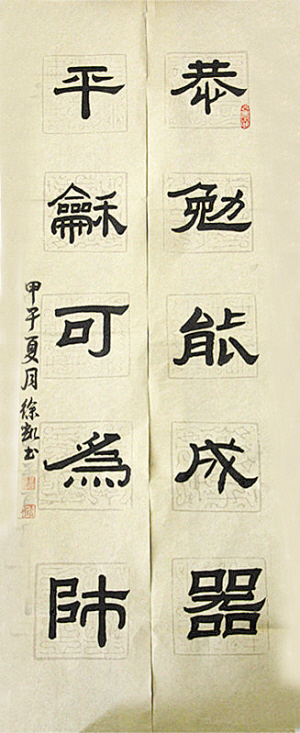 恭勉能成器
平龢可為師
甲子夏月徐凱书